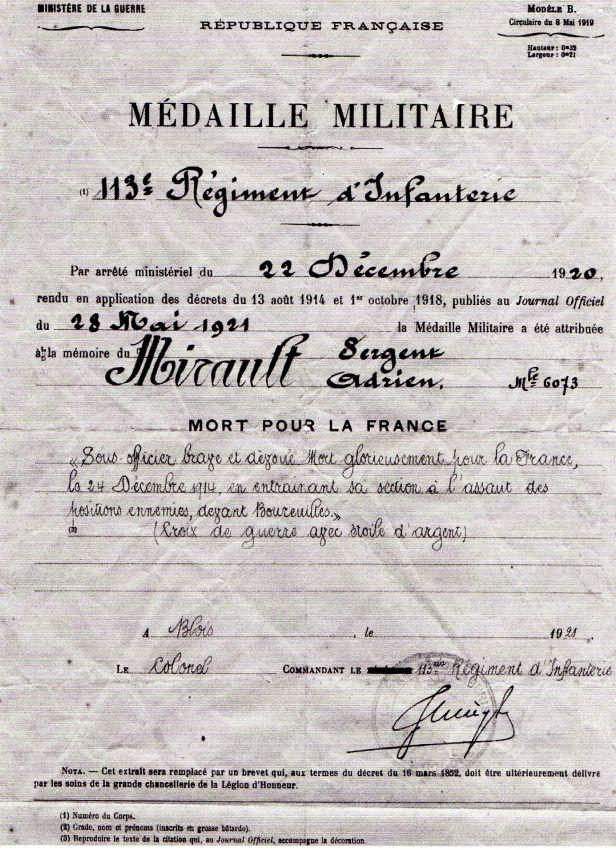 MINISTÈRE DE LA GUERRE
RÉPUBLIQUE FRANÇAISE
MODÈLE B.
Circulaire du 8 Mai 1919
Hauteur : 0m32
Largeur : 0m21
MÉDAILLE MILITAIRE
(1) 113e Régiment d'Infanterie
Par arrêté ministériel du 22 Décembre 1920,
rendu en application des décrets du 13 août 1914 et 1er octobre 1918, publiés au Journal Officiel
du 28 Mai 1921 la Médaille Militaire a été attribuée
à la mémoire du Mirault Sergent
Adrien. Mle 6073
MORT POUR LA FRANCE
« Sous-officier brave et dévoué Mort glorieusement pour la France,
le 24 Décembre 1914, en entrainant sa section à l'assaut des
positions ennemies, devant Boureuilles.»
(3) (Croix de guerre avec étoile d'argent)
A Blois, le 1921
LE Colonel COMMANDANT LE 113me Régiment d'Infanterie
NOTA. — Cet extrait sera remplacé par un brevet qui, aux termes du décret du 16 mars 1852, doit être ultérieurement délivré
par les soins de la grande chancellerie de la Légion d'Honneur.
(1) Numéro du Corps.
(2) Grade, nom et prénoms (inscrits en grosse bâtarde).
(3) Reproduire le texte de la citation qui, au Journal Officiel, accompagne la décoration.